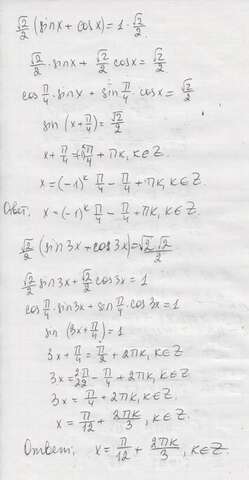 √2/2 (sinx + cosx) = 1 · √2/2
√2/2 · sinx + √2/2 cosx = √2/2
cos π/4 · sinx + sin π/4 · cosx = √2/2
sin (x + π/4) = √2/2
x + π/4 = π/4 + πk, k∈Z.
x = (-1)^k π/4 - π/4 + πk, k∈Z.
Ответ. x = (-1)^k π/4 - π/4 + πk, k∈Z.
√2/2 (sin3x + cos3x) = √2·√2/2
√2/2 sin3x + √2/2 cos3x = 1
cos π/4 · sin3x + sin π/4 · cos3x = 1
sin (3x + π/4) = 1
3x + π/4 = π/2 + 2πk, k∈Z
3x = 2π/22 - π/4 + 2πk, k∈Z
3x = π/4 + 2πk, k∈Z.
x = π/12 + 2πk/3, k∈Z.
Ответ: x = π/12 + 2πk/3, k∈Z.